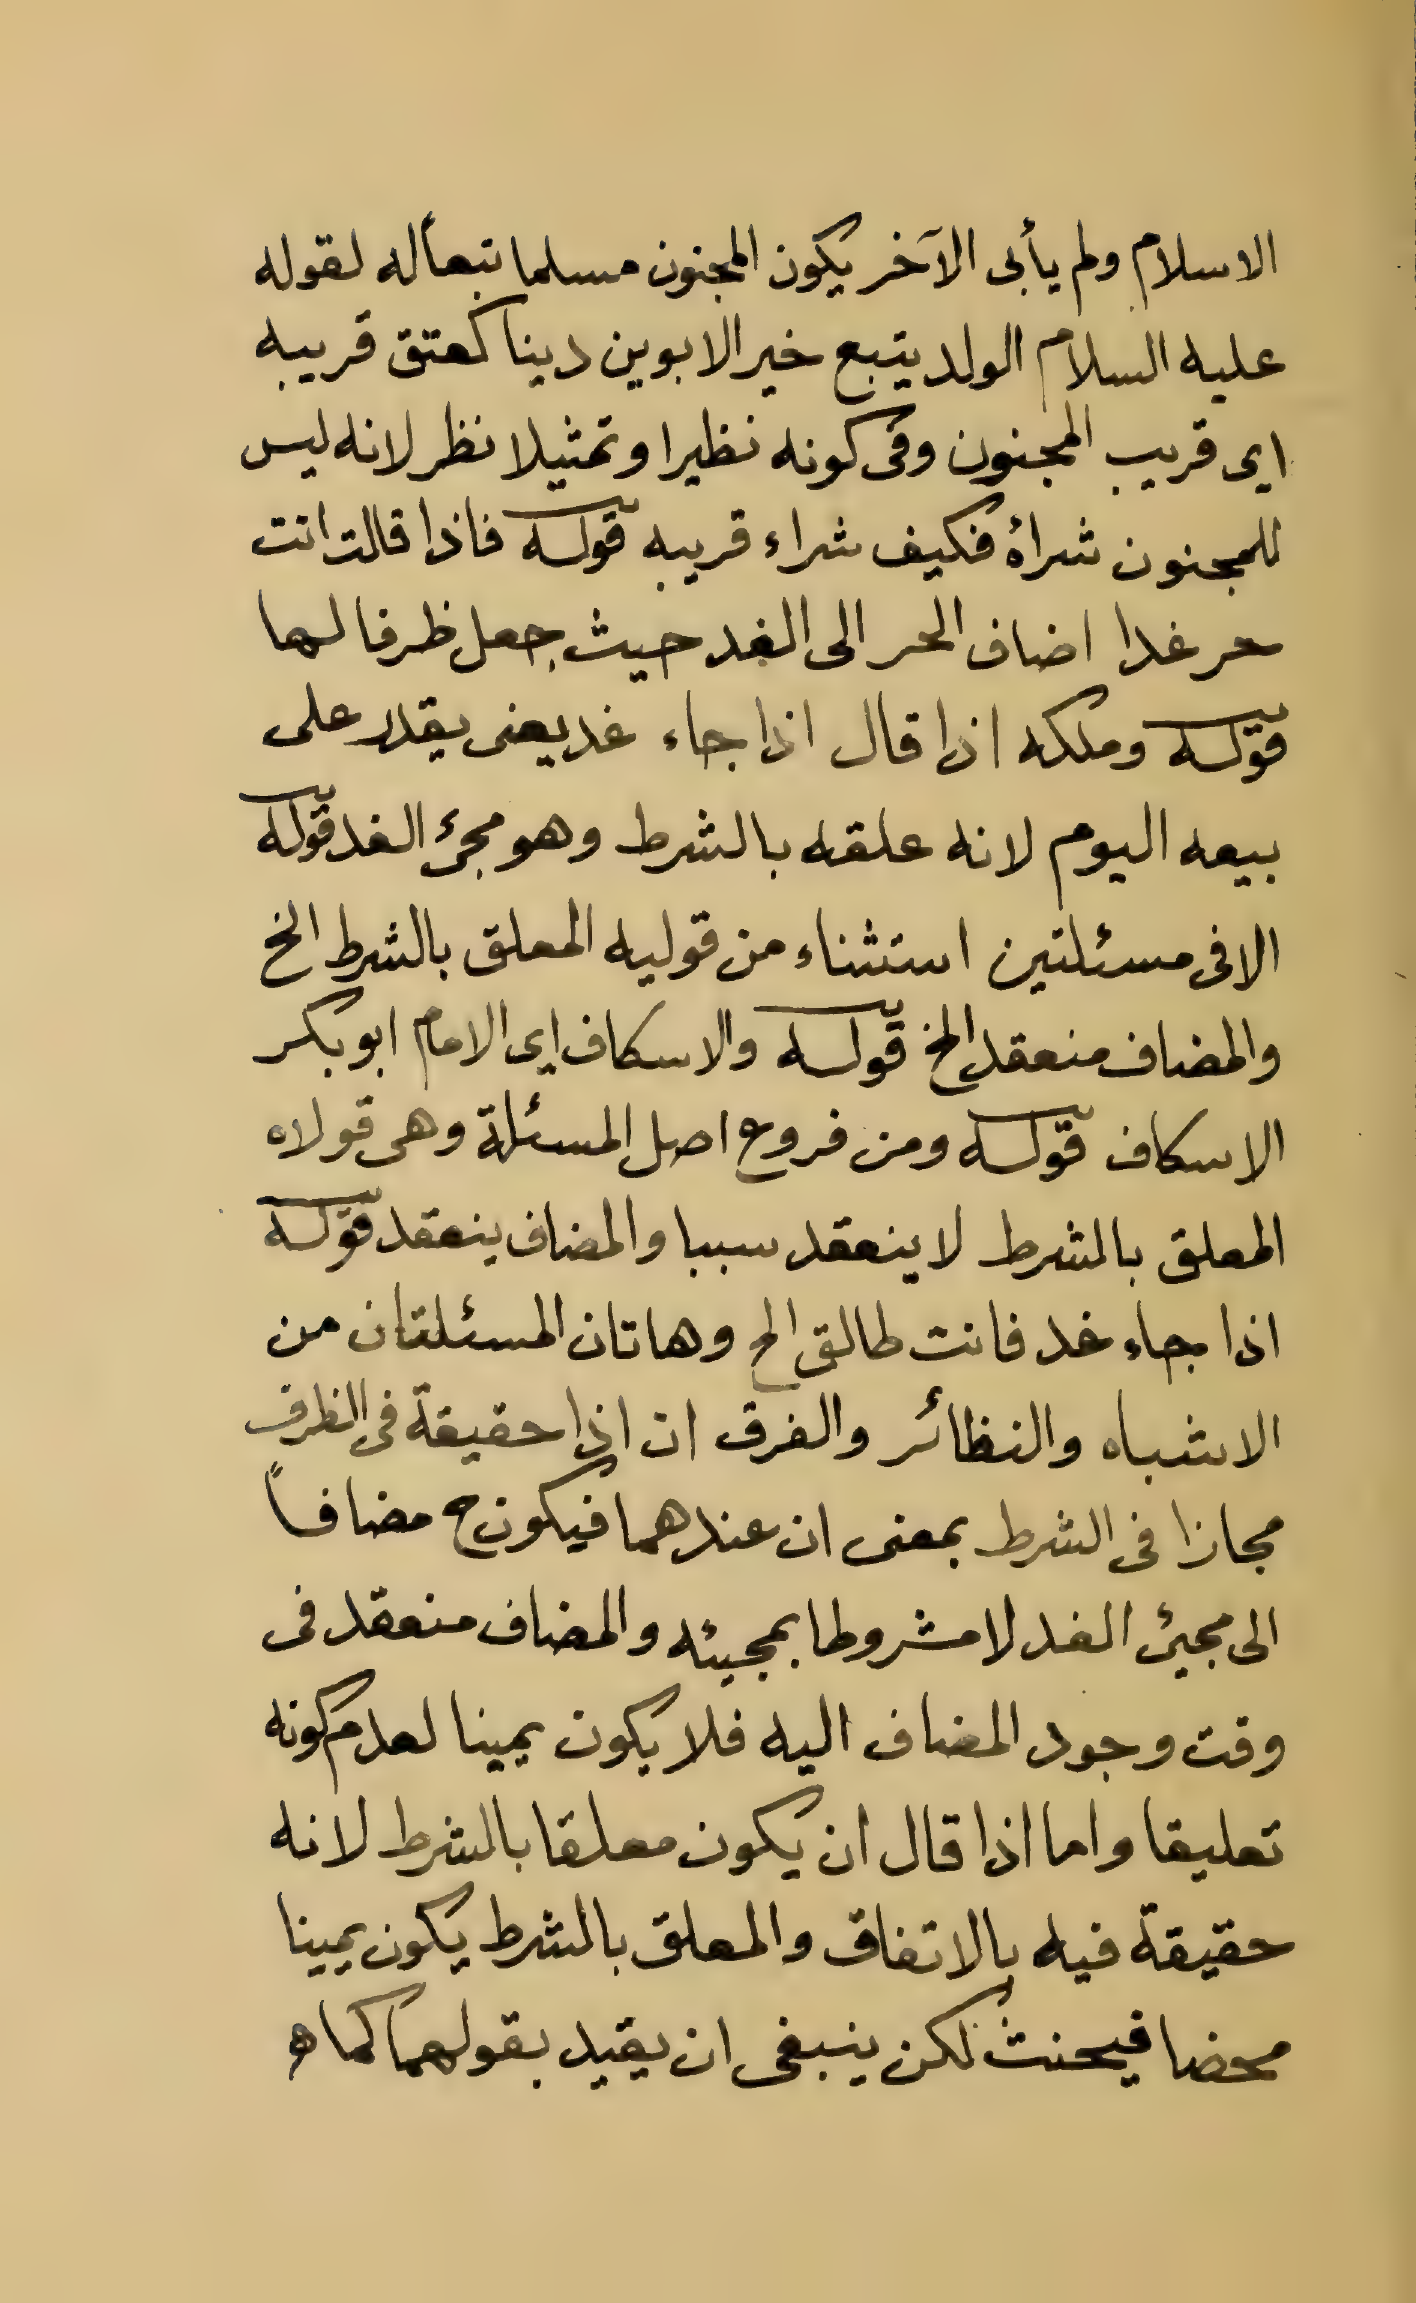 الاسلام ولم يأبى الآخر يكون المجنون مسلما تبعاً له لقوله
عليه السلام الولد يتبع خير الابوين دينا كعتق قريبه
اى قريب المجنون وفى كونه نظيرا وتمثيلا نظر لانه ليس
للمجنون شراءٔ فكيف شراء قريبه قوله فاذا قالت انت
حر غدا اضاف الحر الى الغد حيث جعل ظرفا لها
قوله وملكه اذا قال اذا جاء غد يعنى يقدر على
بيعه اليوم لانه علقه بالشرط وهو مجئ الغد قوله
الا فى مسئلتين استثناء من قوليه المعلق بالشرط الخ
والمضاف منعقد الخ قوله والاسكاف اى الامام ابو بكر
الاسكاف قوله ومن فروع اصل المسئلة وهى قولاه
المعلق بالشرط لا ينعقد سببا والمضاف ينعقد قوله
اذا جاء غد فانت طالق الخ وهاتان المسئلتان من
الاشباه والنظائر والفرق ان اذا حقيقة فى الظرف
مجازا فى الشرط بمعنى ان عندهما فيكون ح مضافاً
الى مجيئ الغد لا مشروطا بمجيئه والمضاف منعقد فى
وقت وجود المضاف اليه فلا يكون يمينا لعدم كونه
تعليقا واما اذا قال ان يكون معلقا بالشرط لانه
حقيقة فيه بالاتفاق والمعلق بالشرط يكون يمينا
محضا فيحنث لكن ينبغى ان يقيد بقولهما كما ه